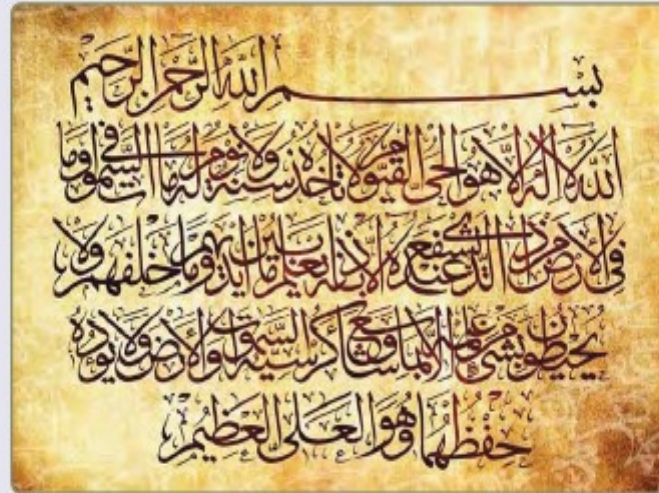 بِسْمِ اللهِ الرَّحْمٰنِ الرَّحِيْمِ
اَللهُ لَا اِلٰهَ اِلَّا هُوَ الْحَىُّ الْقَيُّوْمُ لَا تَاْخُذُهُ سِنَةٌ وَلَا نَوْمٌ لَهُ مَا فِى السَّمٰوٰتِ وَمَا
فِى الْاَرْضِ مَنْ ذَا الَّذِىْ يَشْفَعُ عِنْدَهُ اِلَّا بِاِذْنِهِ يَعْلَمُ مَا بَيْنَ اَيْدِيْهِمْ وَمَا خَلْفَهُمْ وَلَا
يُحِيْطُوْنَ بِشَىْءٍ مِنْ عِلْمِهِ اِلَّا بِمَا شَاءَ وَسِعَ كُرْسِيُّهُ السَّمٰوٰتِ وَالْاَرْضَ وَلَا يَئُوْدُهُ
حِفْظُهُمَا وَهُوَ الْعَلِىُّ الْعَظِيْمُ